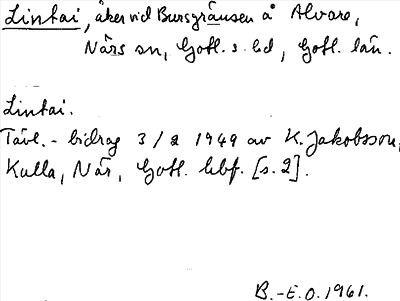 Lintai, åker vid Bursgränsen å Alvare,
Närs sn, Gotl. s. hd, Gotl. län.
Lintai.
Tävl.-bidrag 3/2 1949 av K. Jakobsson,
Kulla, När, Gotl. hbf. [s. 2].
B.-E.O. 1961.